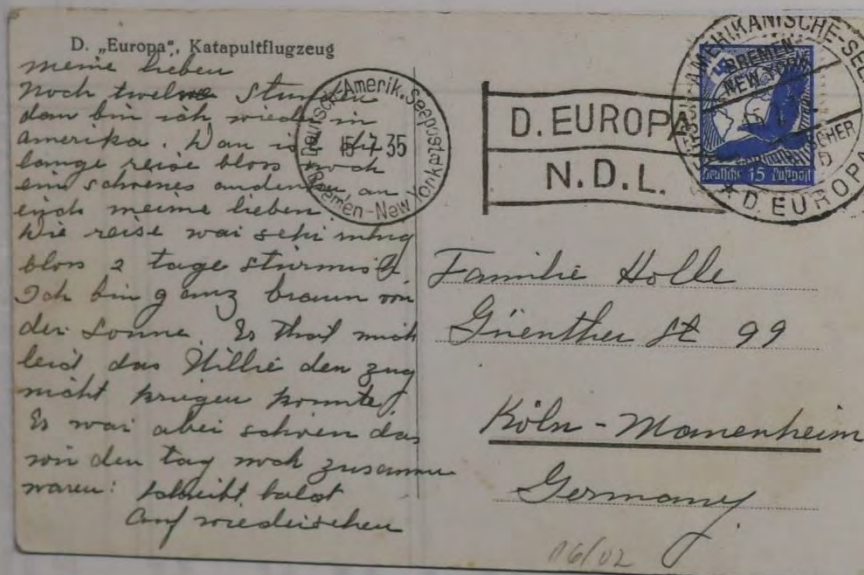 D. „Europa“, Katapultflugzeug
meine lieben
Noch twelve Stunden
dan bin ich wieder in
amerika. Dan is die
lange reise blos noch
ein schoenes andenken an
euch meine lieben.
Die reise war sehr ruhig
blos 2 tage stürmisch
Ich bin ganz braun von
der Sonne. Es thut mich
leid das Willie den zug
nicht kriegen konnte.
Es war aber schoen das
wir den tag noch zusamme
waren: schreibt balst
Auf wiedersehen
Deutsch-Amerik. Seepost
15/7 35
Bremen-New York
D. EUROPA
N.D.L.
AMERIKANISCHE-SEE
BREMEN
NEW YORK
Deutsche 15 Luftpost
D. EUROPA
Familie Holle
Güenther St 99
Köln - Manenheim
Germany
06/02